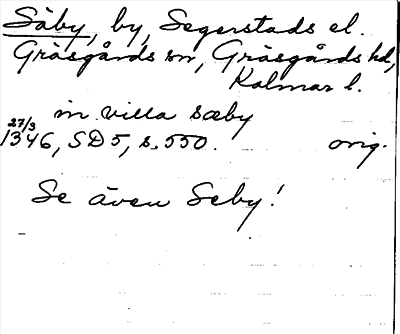 Säby, by, Segerstads el.
Gräsgårds sn, Gräsgårds hd,
Kalmar l.
in villa sæby
27/3
1346, SD 5, s. 550. orig.
Se även Seby!